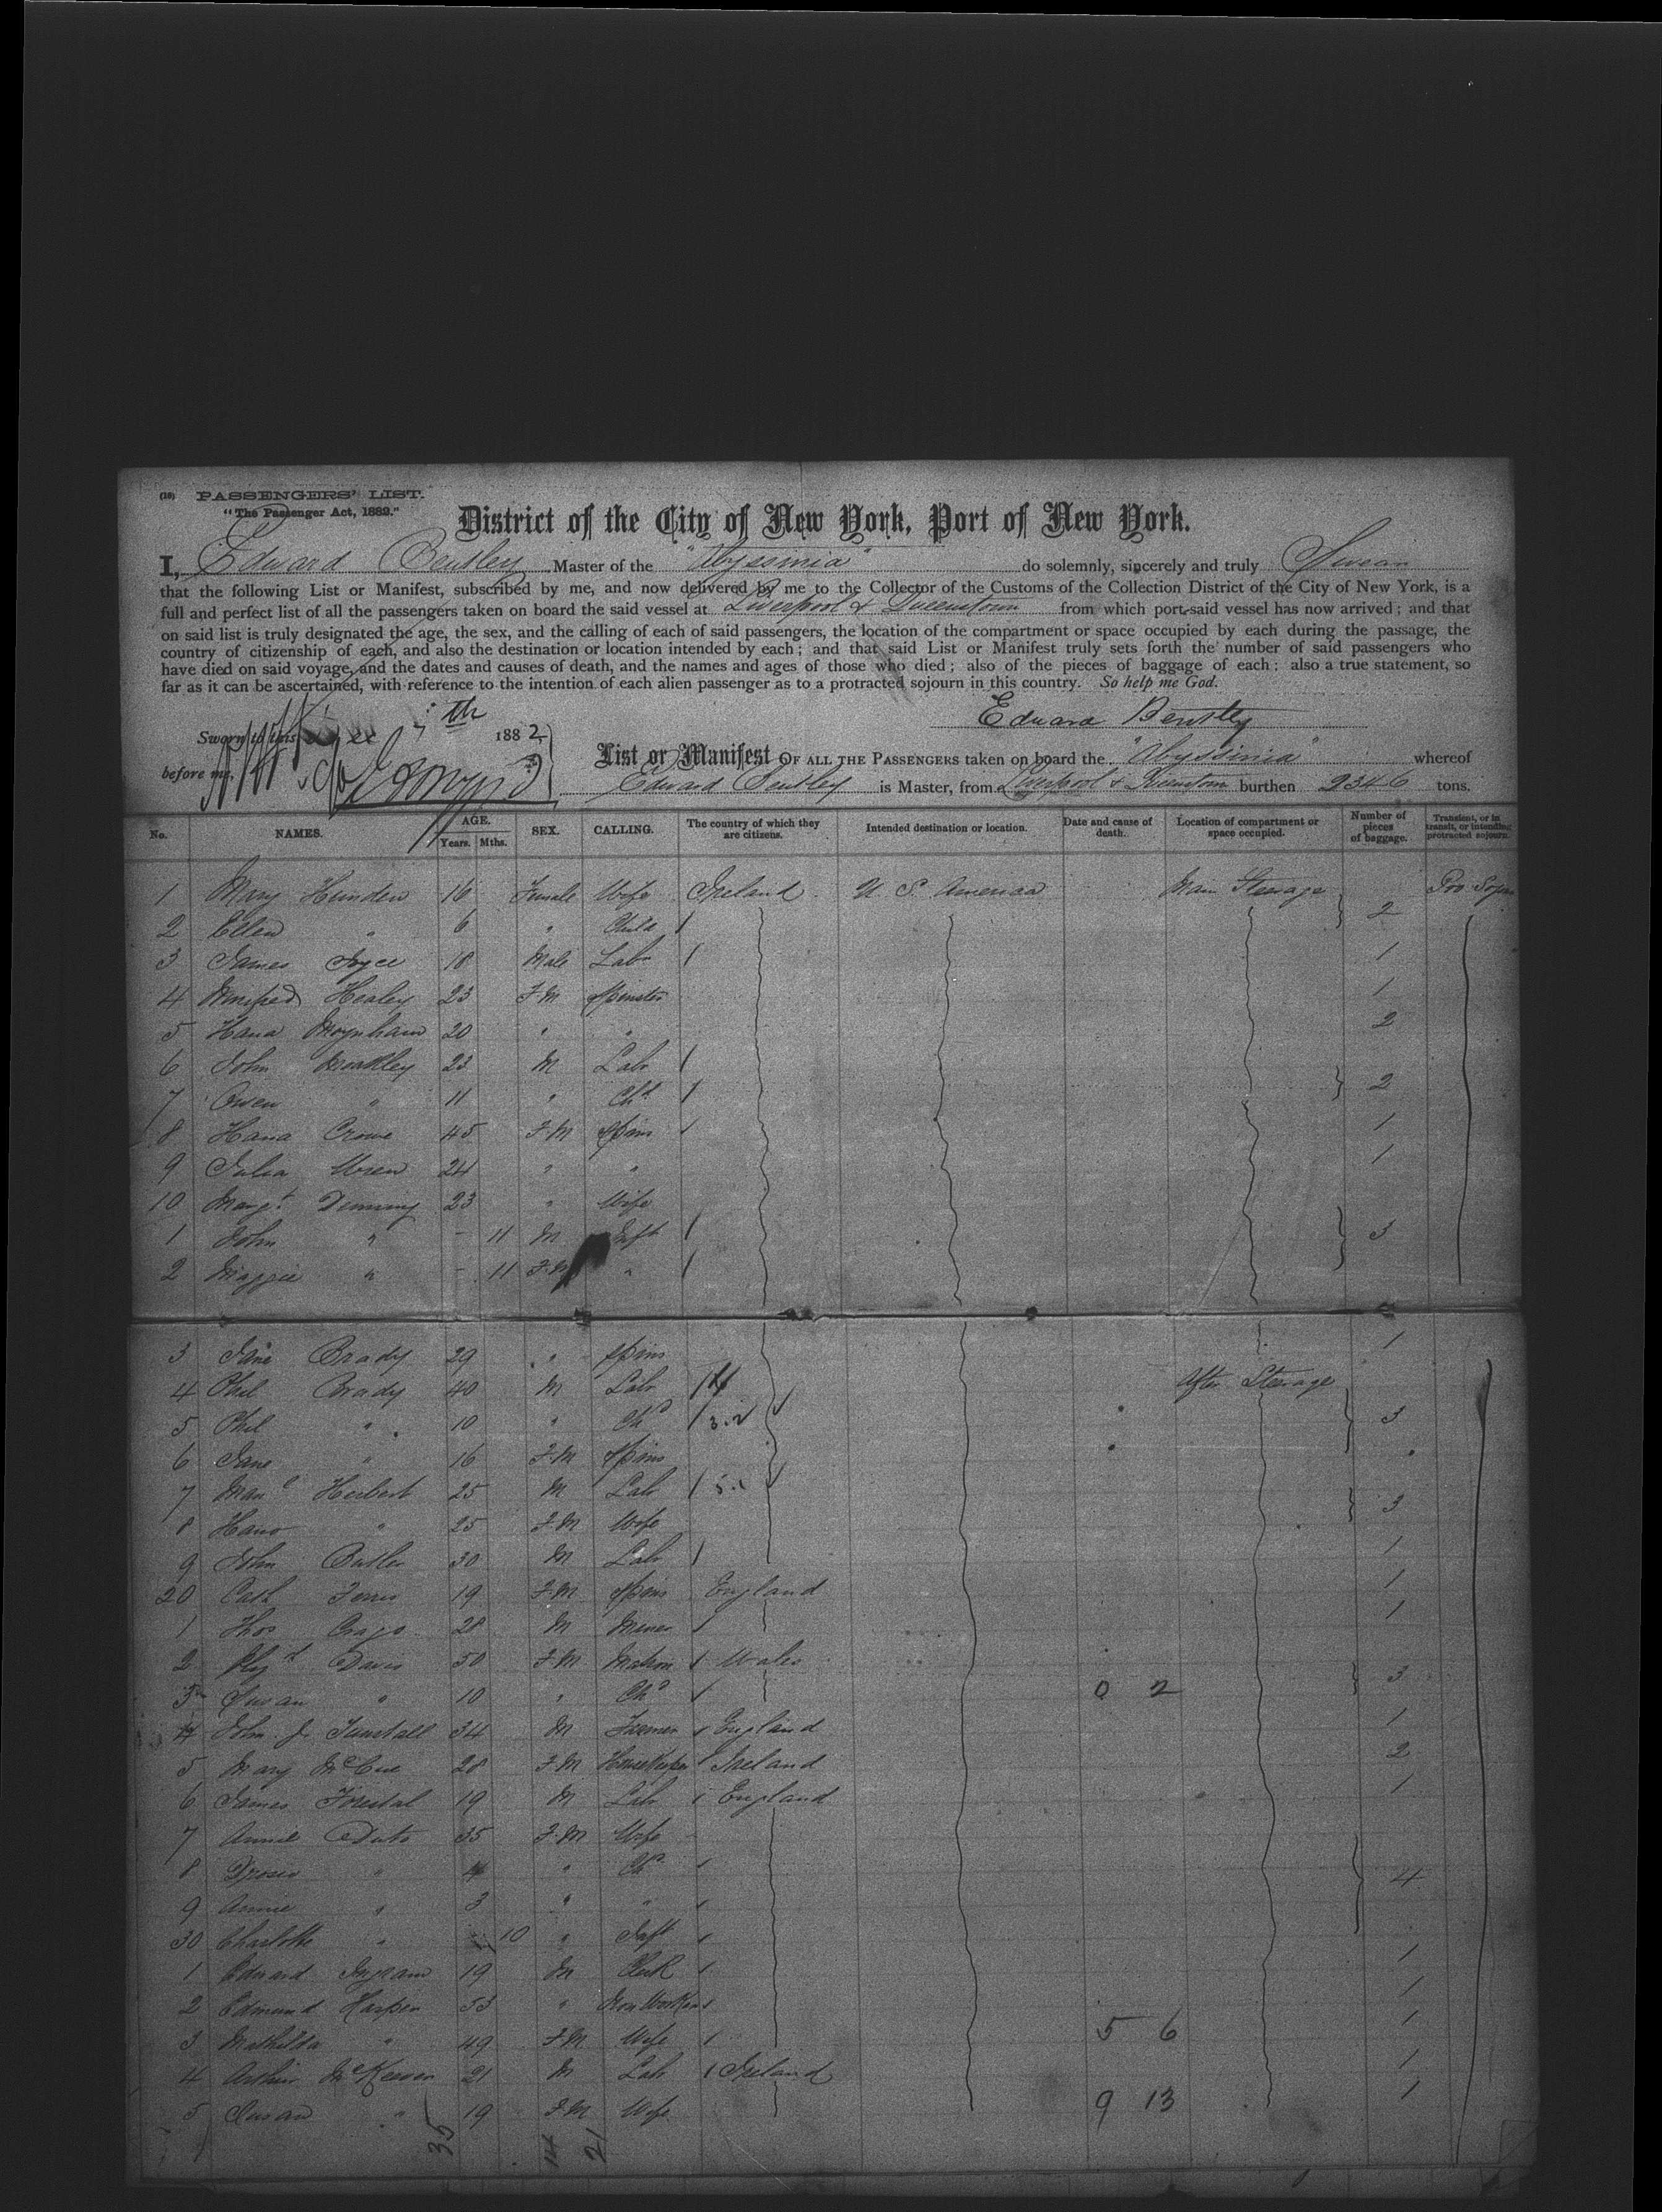 (18) PASSENGERS' LIST.
"The Passenger Act, 1882."
District of the City of New York, Port of New York.
I, Edward Bentley Master of the "Abyssinia" do solemnly, sincerely and truly Swear
that the following List or Manifest, subscribed by me, and now delivered by me to the Collector of the Customs of the Collection District of the City of New York, is a
full and perfect list of all the passengers taken on board the said vessel at Liverpool & Queenstown from which port said vessel has now arrived; and that
on said list is truly designated the age, the sex, and the calling of each of said passengers, the location of the compartment or space occupied by each during the passage, the
country of citizenship of each, and also the destination or location intended by each; and that said List or Manifest truly sets forth the number of said passengers who
have died on said voyage, and the dates and causes of death, and the names and ages of those who died; also of the pieces of baggage of each; also a true statement, so
far as it can be ascertained, with reference to the intention of each alien passenger as to a protracted sojourn in this country. So help me God.
Edward Bentley
Sworn to this 7th 1882
before me,
List or Manifest OF ALL THE PASSENGERS taken on board the "Abyssinia" whereof
Edward Bentley is Master, from Liverpool & Queenstown burthen 2346 tons.
No. NAMES. AGE. Years. Mths. SEX. CALLING. The country of which they are citizens. Intended destination or location. Date and cause of death. Location of compartment or space occupied. Number of pieces of baggage. Transient, or in transit, or intending protracted sojourn.
1 Mary 16 Female Wife Ireland U S America Main Steerage Pro Sojn
2 Ellen " 6 " Child 1 2
3 James Joyce 18 Male Lab 1 1
4 Winifred Healey 23 F.M Spinster 1
5 Hana Moynham 20 " " 2
6 John 23 M Lab 1
7 Owen " 11 " Chd 1 2
8 Hana Crowe 45 F.M Spins 1 1
9 Julia Wren 24 " " 1
10 Margt Denning 23 " Wife
1 John " - 11 M Inft 1 3
2 Maggie " - 11 F.M " 1
3 Jane Brady 29 " Spins 1
4 Phil Brady 40 M Lab 1 After Steerage
5 Phil " 10 " Chd 1 3
6 Jane " 16 F.M Spins
7 Herbert 25 M Lab 1
8 " 25 F.M Wife 3
9 John Butler 30 M Lab 1 1
20 Cath 19 F.M Spins England 1
1 Thos 28 M Miner 1 1
2 Davis 50 F.M Matron 1 Wales
3 Susan " 10 " Chd 1 0 2 3
4 John J. Tunstall 34 M Farmer 1 England 1
5 Mary McCue 28 F.M Housekeeper 1 Ireland 2
6 James Forestal 19 M Lab 1 England 1
7 Annie 35 F.M Wife
8 " 4 " Chd 1 4
9 Annie " 3 " " 1
30 Charlotte " 10 " Inft 1
1 Edward Ingram 19 M Clerk 1 1
2 Edmund Harper 53 " Iron Worker 1 1
3 Mathilda " 49 F.M Wife 1 5 6 1
4 Arthur McKeever 21 M Lab 1 Ireland 1
5 Susan " 19 F.M Wife 9 13 1
35 14 21